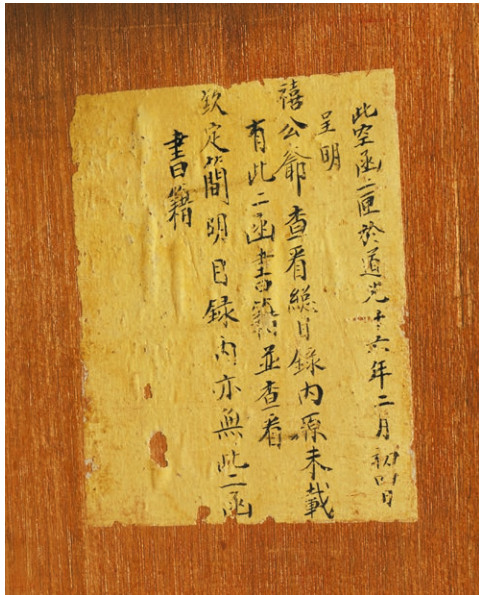 此空函二匣於道光十六年二月初四日
呈明
禧公爺查看總目錄內原未載
有此二函書籍並查看
欽定簡明目録內亦無此二函
書籍